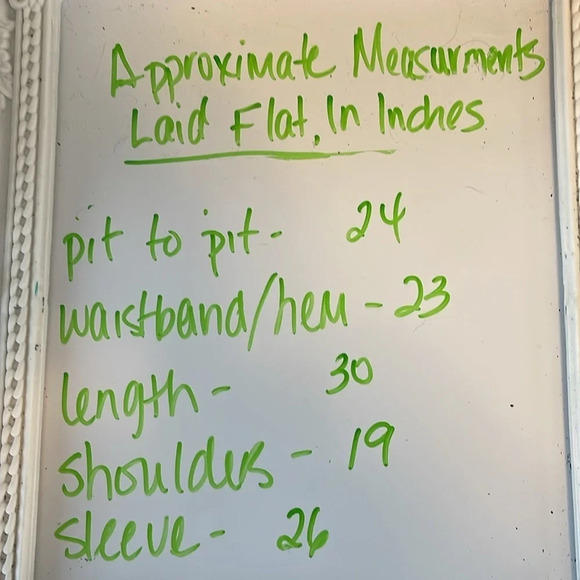 Approximate Measurments
Laid Flat, In Inches
pit to pit - 24
waistband/hem - 23
length - 30
shoulders - 19
sleeve - 26